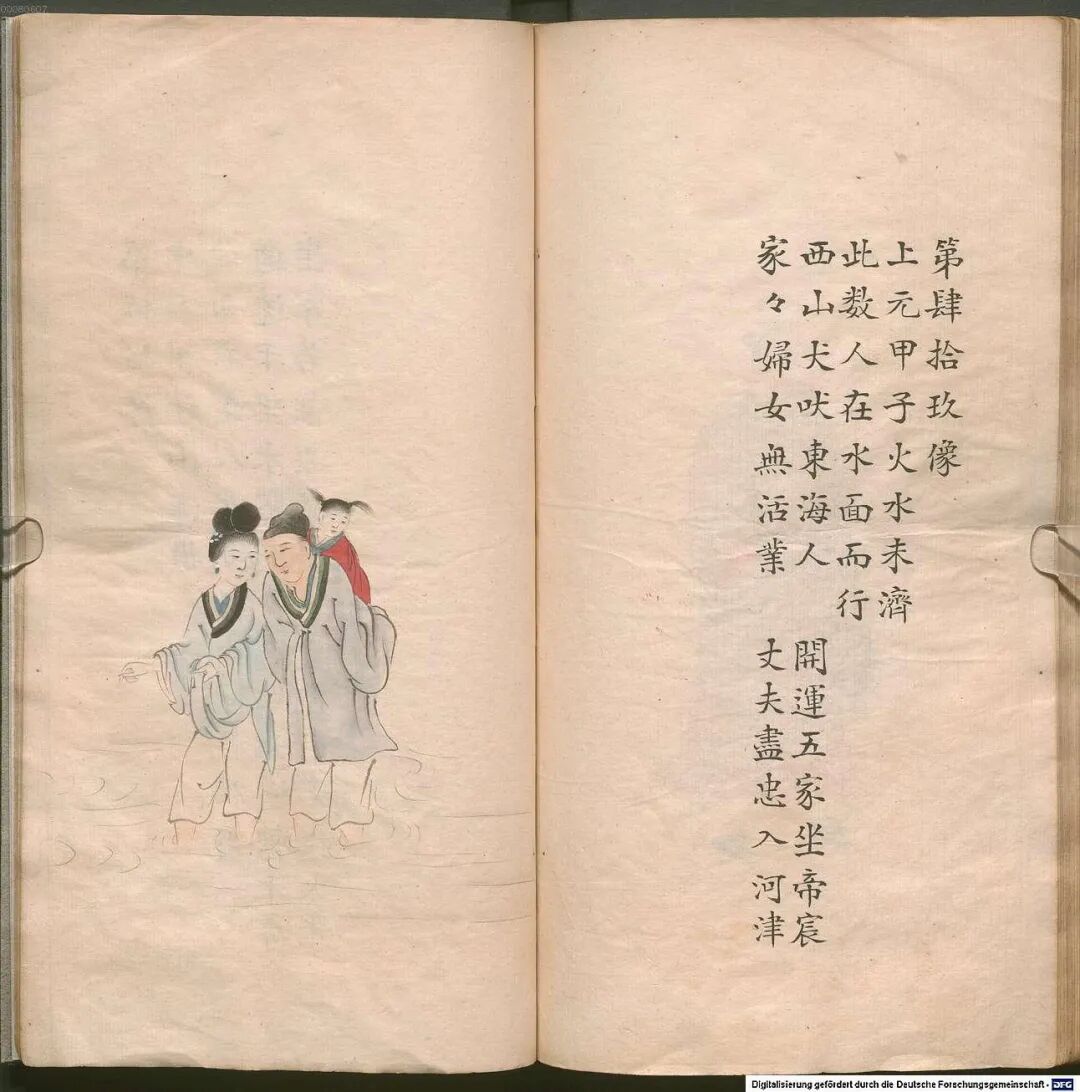 第肆拾玖像
上元甲子火水未濟
此数人在水面而行
西山犬吠東海人　開運五家坐帝宸
家々婦女無活業　丈夫盡忠入河津
00080607
Digitalisierung gefördert durch die Deutsche Forschungsgemeinschaft - DFG